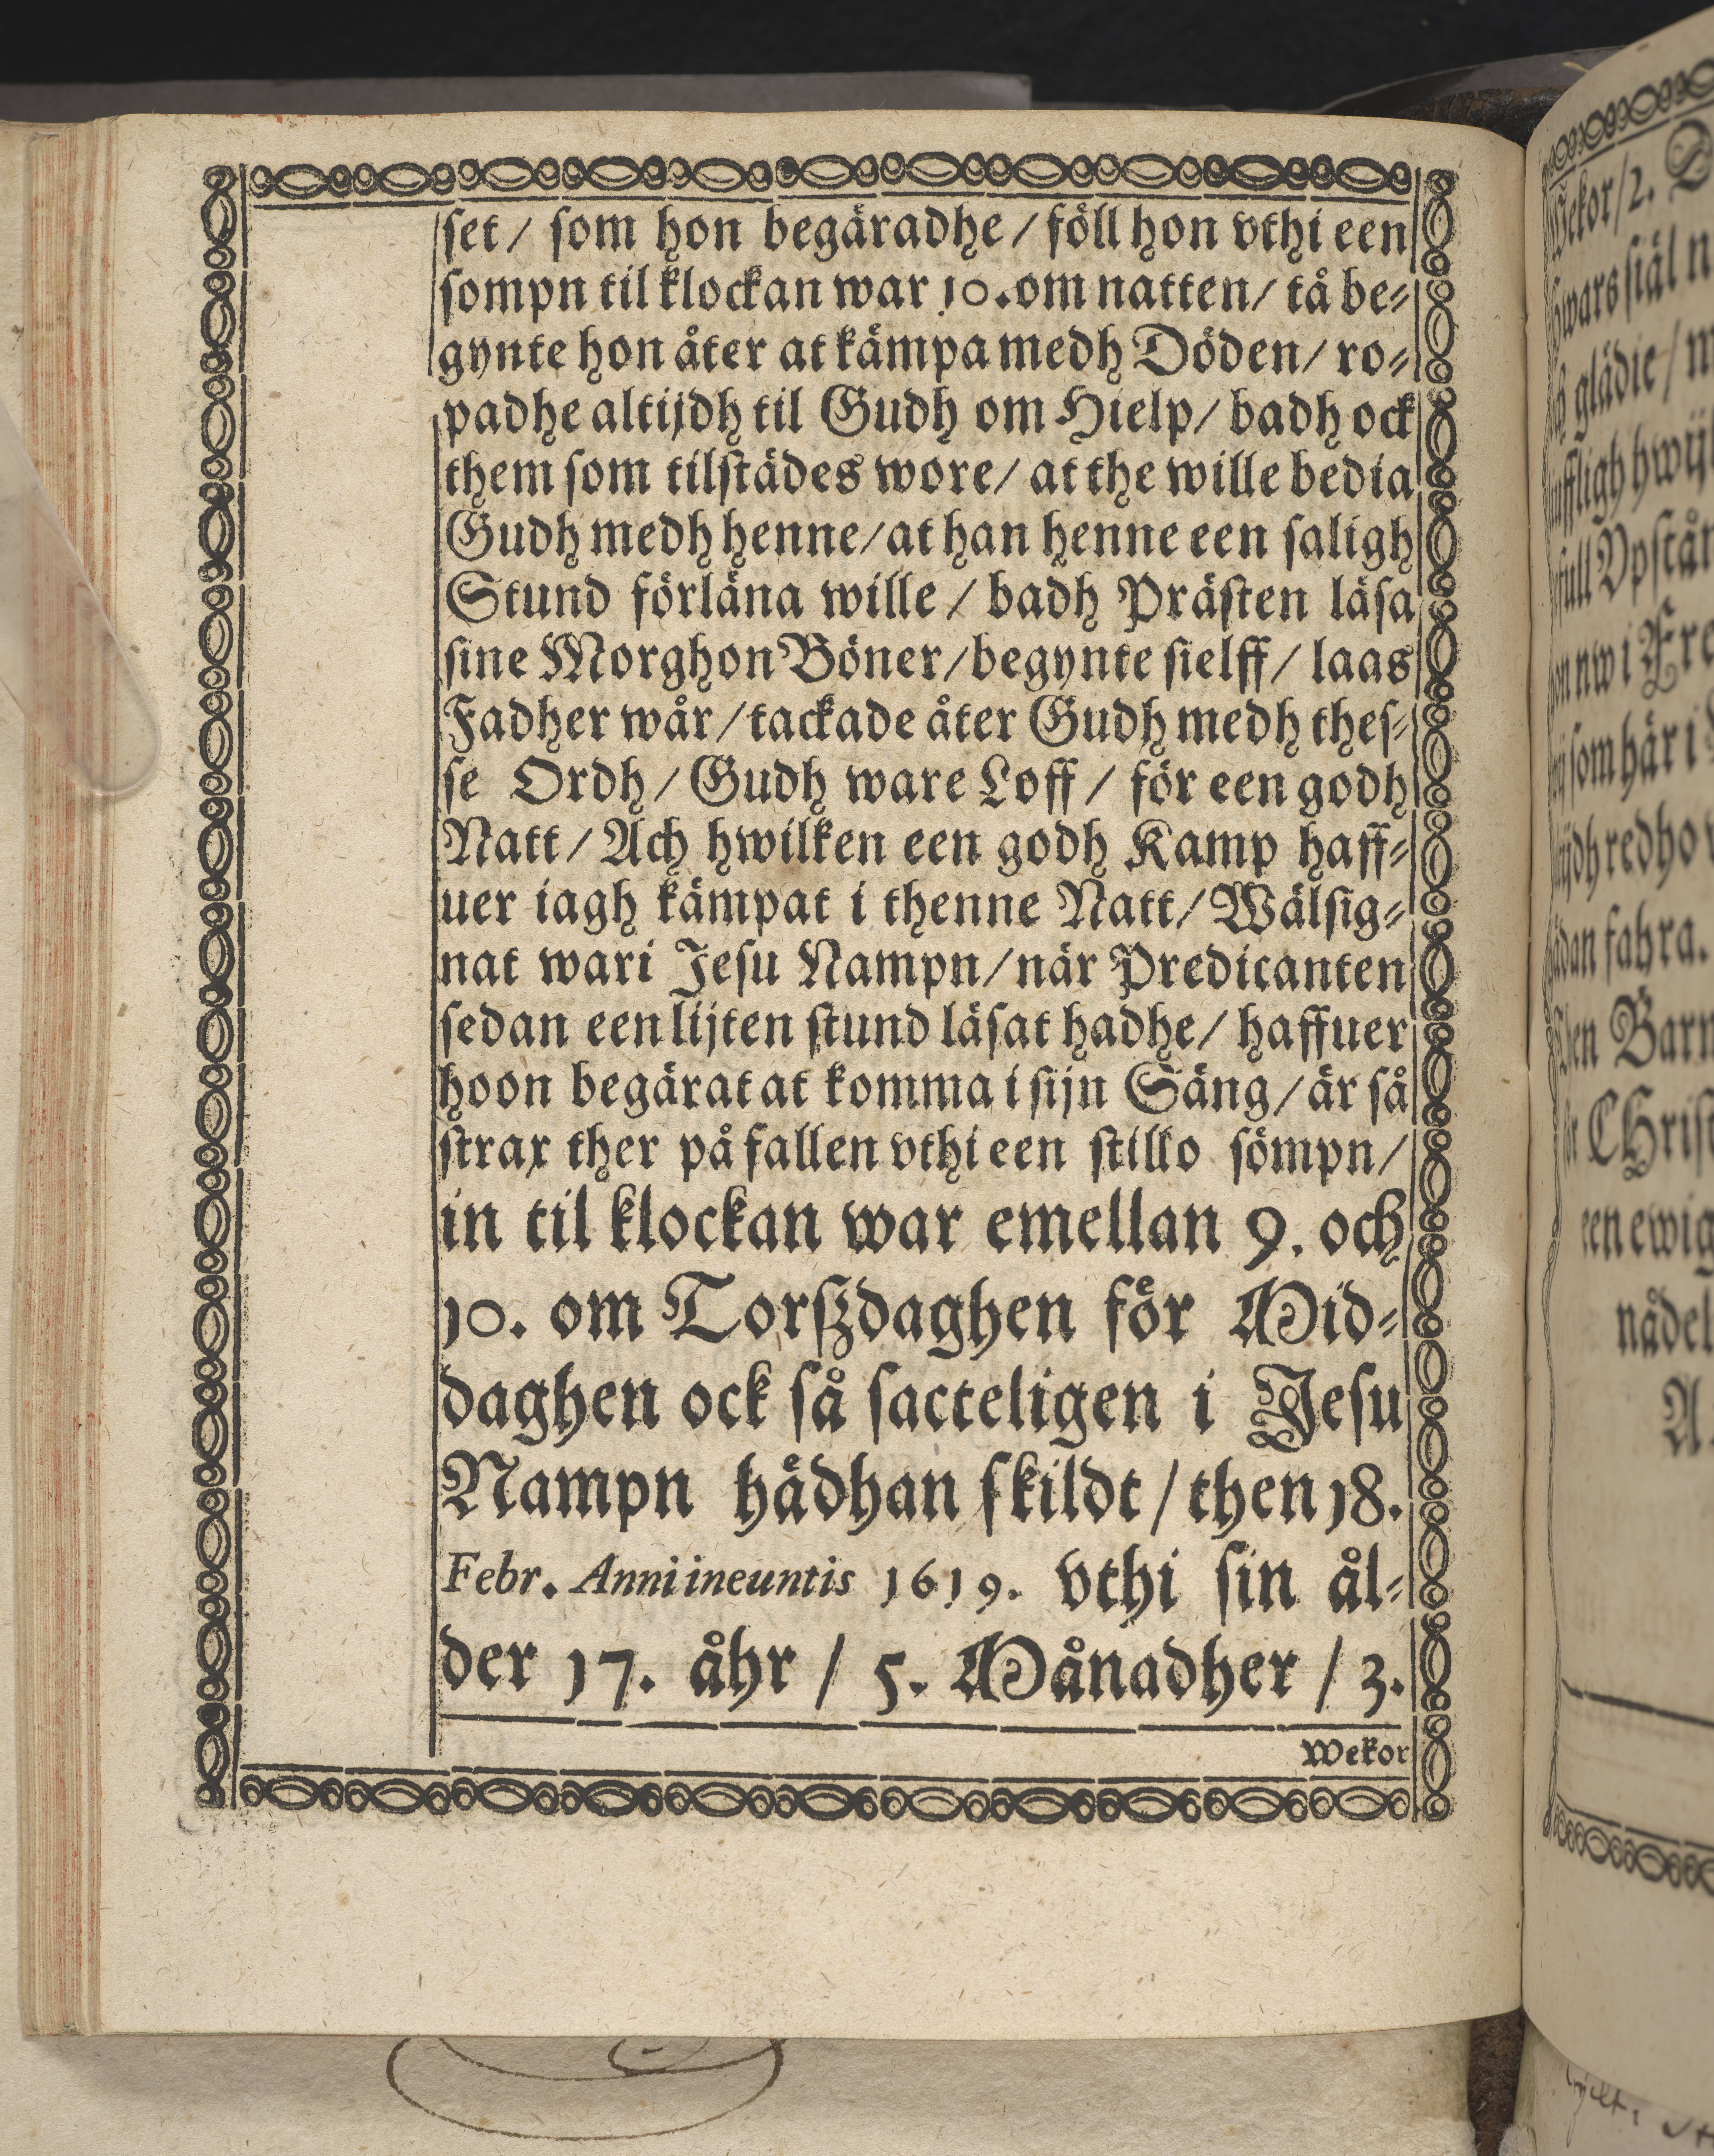 ſet / ſom hon begäradhe / föll hon vthi een
ſompn til klockan war 10. om natten / tå be⸗
gynte hon åter at kämpa medh Döden / ro⸗
padhe altijdh til Gudh om Hielp / badh ock
them ſom tilſtädes wore / at the wille bedia
Gudh medh henne / at han henne een ſaligh
Stund förläna wille / badh Präſten läſa
ſine Morghon Böner / begynte ſielff / laas
Fadher wår / tackade åter Gudh medh theſ⸗
ſe Ordh / Gudh ware Loff / för een godh
Natt / Ach hwilken een godh Kamp haff⸗
uer iagh kämpat i thenne Natt / Wälſig⸗
nat wari Jeſu Nampn / när Predicanten
ſedan een lijten ſtund läſat hadhe / haffuer
hoon begärat at komma i ſijn Säng / är så
ſtrax ther på fallen vthi een ſtillo ſömpn /
in til klockan war emellan 9. och
10. om Torſzdaghen för Mid⸗
daghen ock så ſacteligen i Jeſu
Nampn hådhan ſkildt / then 18.
Febr. Anni ineuntis 1619. vthi ſin ål⸗
der 17. åhr / 5. Månadher / 3.
Wekor
Wekor / 2.
glädie / m
ſom här i
fahra.
Barn
een ewig
nådel
A.